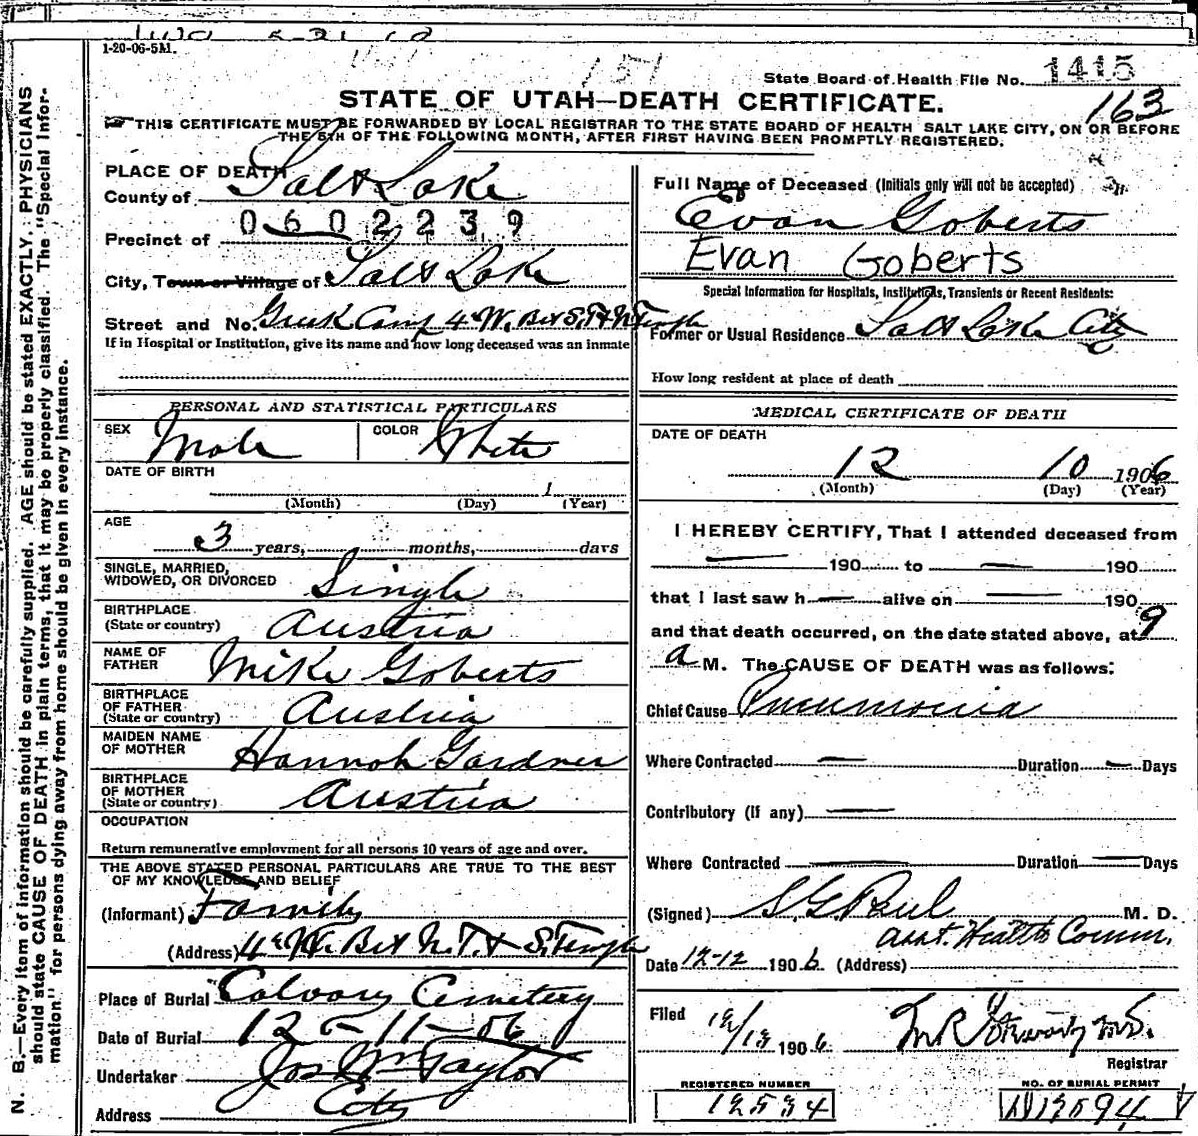 1-20-06-5M.
State Board of Health File No. 1415
STATE OF UTAH—DEATH CERTIFICATE.
163
THIS CERTIFICATE MUST BE FORWARDED BY LOCAL REGISTRAR TO THE STATE BOARD OF HEALTH SALT LAKE CITY, ON OR BEFORE
THE 5TH OF THE FOLLOWING MONTH, AFTER FIRST HAVING BEEN PROMPTLY REGISTERED.
N. B.—Every item of information should be carefully supplied. AGE should be stated EXACTLY. PHYSICIANS
should state CAUSE OF DEATH in plain terms, that it may be properly classified. The "Special Infor-
mation" for persons dying away from home should be given in every instance.
PLACE OF DEATH
County of Salt Lake
0602239
Precinct of
City, Town or Village of Salt Lake
Street and No. Greek Camp 4 W. Bet S.T & N Temple
If in Hospital or Institution, give its name and how long deceased was an inmate
PERSONAL AND STATISTICAL PARTICULARS
SEX Male COLOR White
DATE OF BIRTH
1
(Month) (Day) (Year)
AGE
3 years, months, days
SINGLE, MARRIED,
WIDOWED, OR DIVORCED Single
BIRTHPLACE
(State or country) Austria
NAME OF
FATHER Mike Goberts
BIRTHPLACE
OF FATHER
(State or country) Austria
MAIDEN NAME
OF MOTHER Hannah Gardner
BIRTHPLACE
OF MOTHER
(State or country) Austria
OCCUPATION
Return remunerative employment for all persons 10 years of age and over.
THE ABOVE STATED PERSONAL PARTICULARS ARE TRUE TO THE BEST
OF MY KNOWLEDGE AND BELIEF
(Informant) Family
(Address) 4 W. Bet N.T. & S. Temple
Place of Burial Calvary Cemetery
Date of Burial 12-11-06
Undertaker Jos Wm Taylor
Address City
Full Name of Deceased (Initials only will not be accepted)
Evan Goberts
Evan Goberts
Special Information for Hospitals, Institutions, Transients or Recent Residents:
Former or Usual Residence Salt Lake City
How long resident at place of death
MEDICAL CERTIFICATE OF DEATH
DATE OF DEATH
12 10 1906
(Month) (Day) (Year)
I HEREBY CERTIFY, That I attended deceased from
— 190 to — 190
that I last saw h — alive on — 190
and that death occurred, on the date stated above, at 9
a M. The CAUSE OF DEATH was as follows:
Chief Cause Pneumonia
Where Contracted — Duration — Days
Contributory (if any) —
Where Contracted — Duration — Days
(Signed) S. G. Paul M. D.
asst. Health Comm.
Date 12-12 1906 (Address)
Filed 12/13 1906
Registrar
REGISTERED NUMBER
12534
NO. OF BURIAL PERMIT